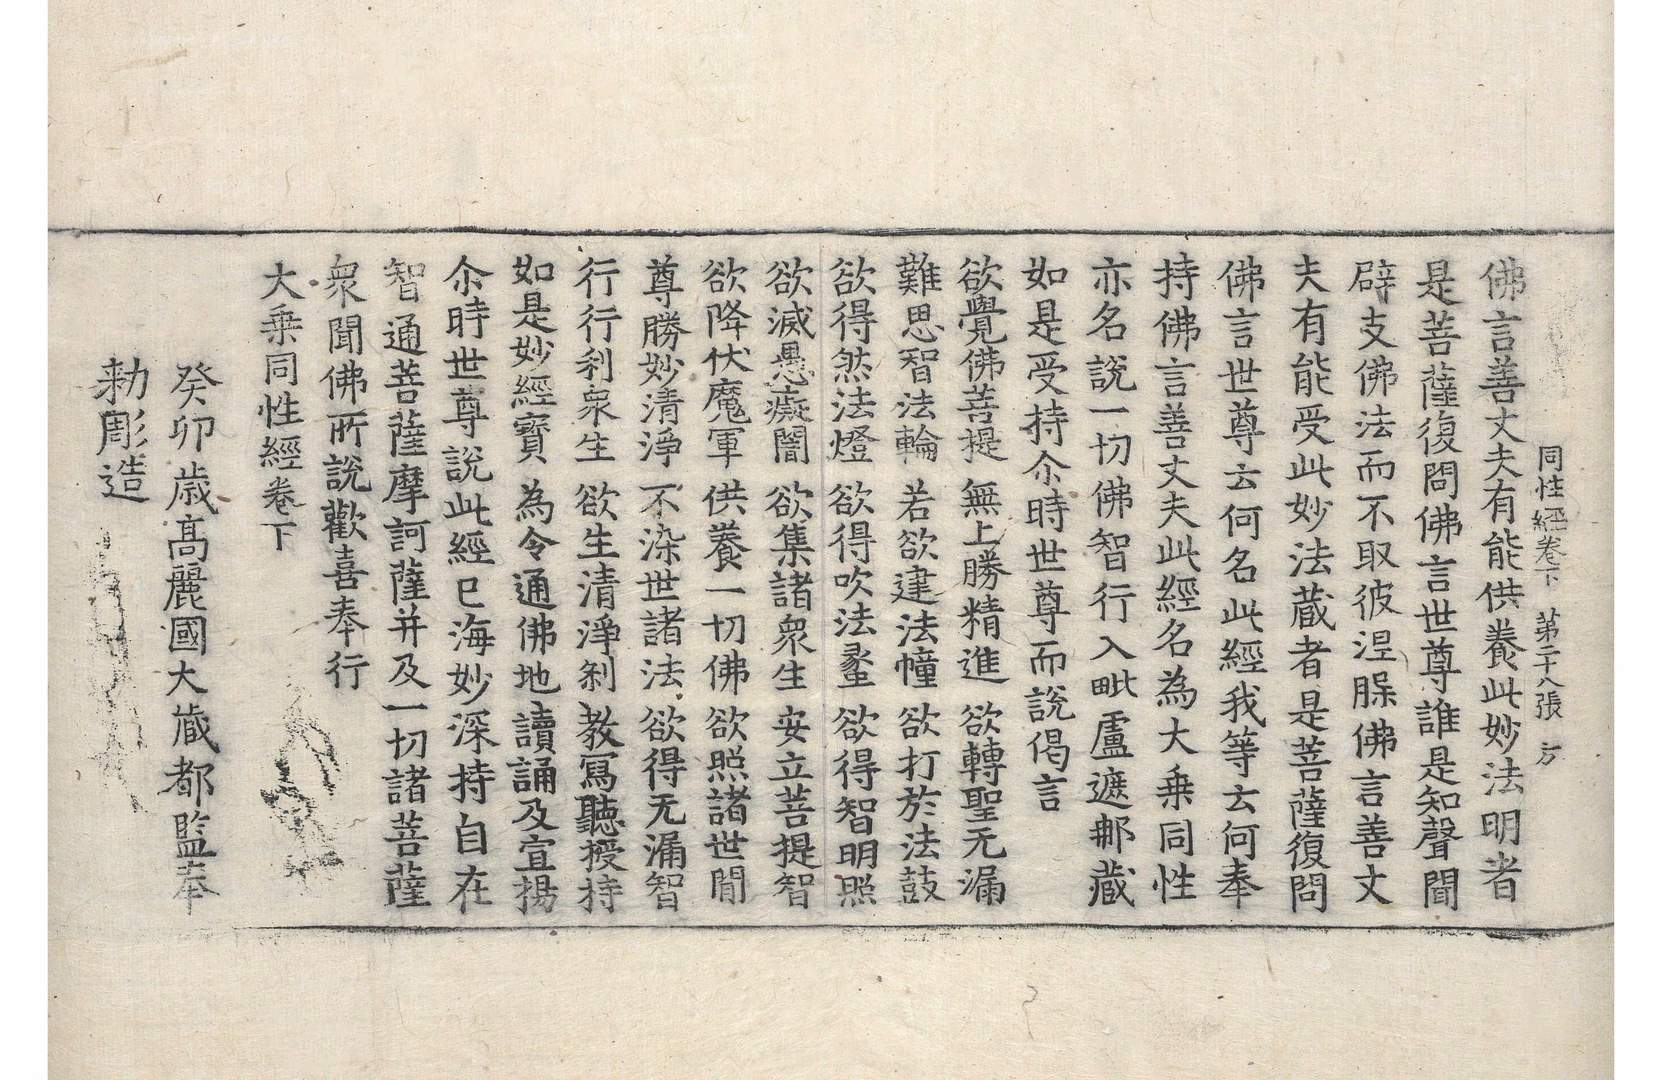 同性經卷下 第二十八張 方
佛言善丈夫有能供養此妙法明者
是菩薩復問佛言世尊誰是知聲聞
辟支佛法而不取彼涅槃佛言善丈
夫有能受此妙法藏者是菩薩復問
佛言世尊云何名此經我等云何奉
持佛言善丈夫此經名為大乘同性
亦名說一切佛智行入毗盧遮那藏
如是受持尒時世尊而說偈言
欲覺佛菩提 無上勝精進 欲轉聖无漏
難思智法輪 若欲建法幢 欲打於法鼓
欲得然法燈 欲得吹法䗍 欲得智明照
欲滅愚癡闇 欲集諸衆生 安立菩提智
欲降伏魔軍 供養一切佛 欲照諸世間
尊勝妙清淨 不染世諸法 欲得无漏智
行行利衆生 欲生清淨剎 教寫聽授持
如是妙經寶 為令通佛地 讀誦及宣揚
尒時世尊說此經已海妙深持自在
智通菩薩摩訶薩并及一切諸菩薩
衆聞佛所說歡喜奉行
大乘同性經卷下
癸卯歳高麗國大藏都監奉
勅彫造